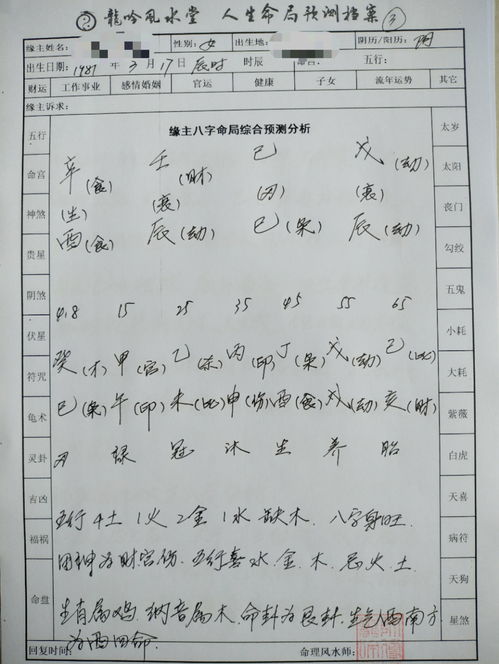 ② 龍吟風水堂 人生命局预测档案 ③
缘主姓名: 性别: 女 出生地: 阴历/阳历: 阴
出生日期: 1981 年 3 月 17日 辰时 时辰 命宫: 五行:
财运 工作事业 感情婚姻 官运 健康 子女 流年运势 其它
缘主诉求:
五行 命宫 神煞 贵星 阴煞 伏星 符咒 龟术 灵卦 吉凶 福祸 命盘
缘主八字命局综合预测分析
辛(食) 壬(财) 己 戊(劫)
(生) (衰) (衰)
酉(食) 辰(劫) 巳(枭) 辰(劫)
4.8 15 25 35 45 55 65
癸(才) 甲(官) 乙(杀) 丙(印) 丁(枭) 戊(劫) 己(比)
巳(枭) 午(印) 未(比) 申(伤) 酉(食) 戌(劫) 亥(财)
禄 冠 沐 生 养 胎
五行 4土 1火 2金 1水 缺木. 八字身旺.
用神为财官伤. 五行喜水.金.木.忌火.土.
生肖属鸡.纳音属木.命卦为艮卦.生气西南方
为西四命
太岁 太阳 丧门 勾绞 五鬼 小耗 大耗 紫薇 白虎 天喜 病符 天狗 星煞
回复时间: 命理风水师: